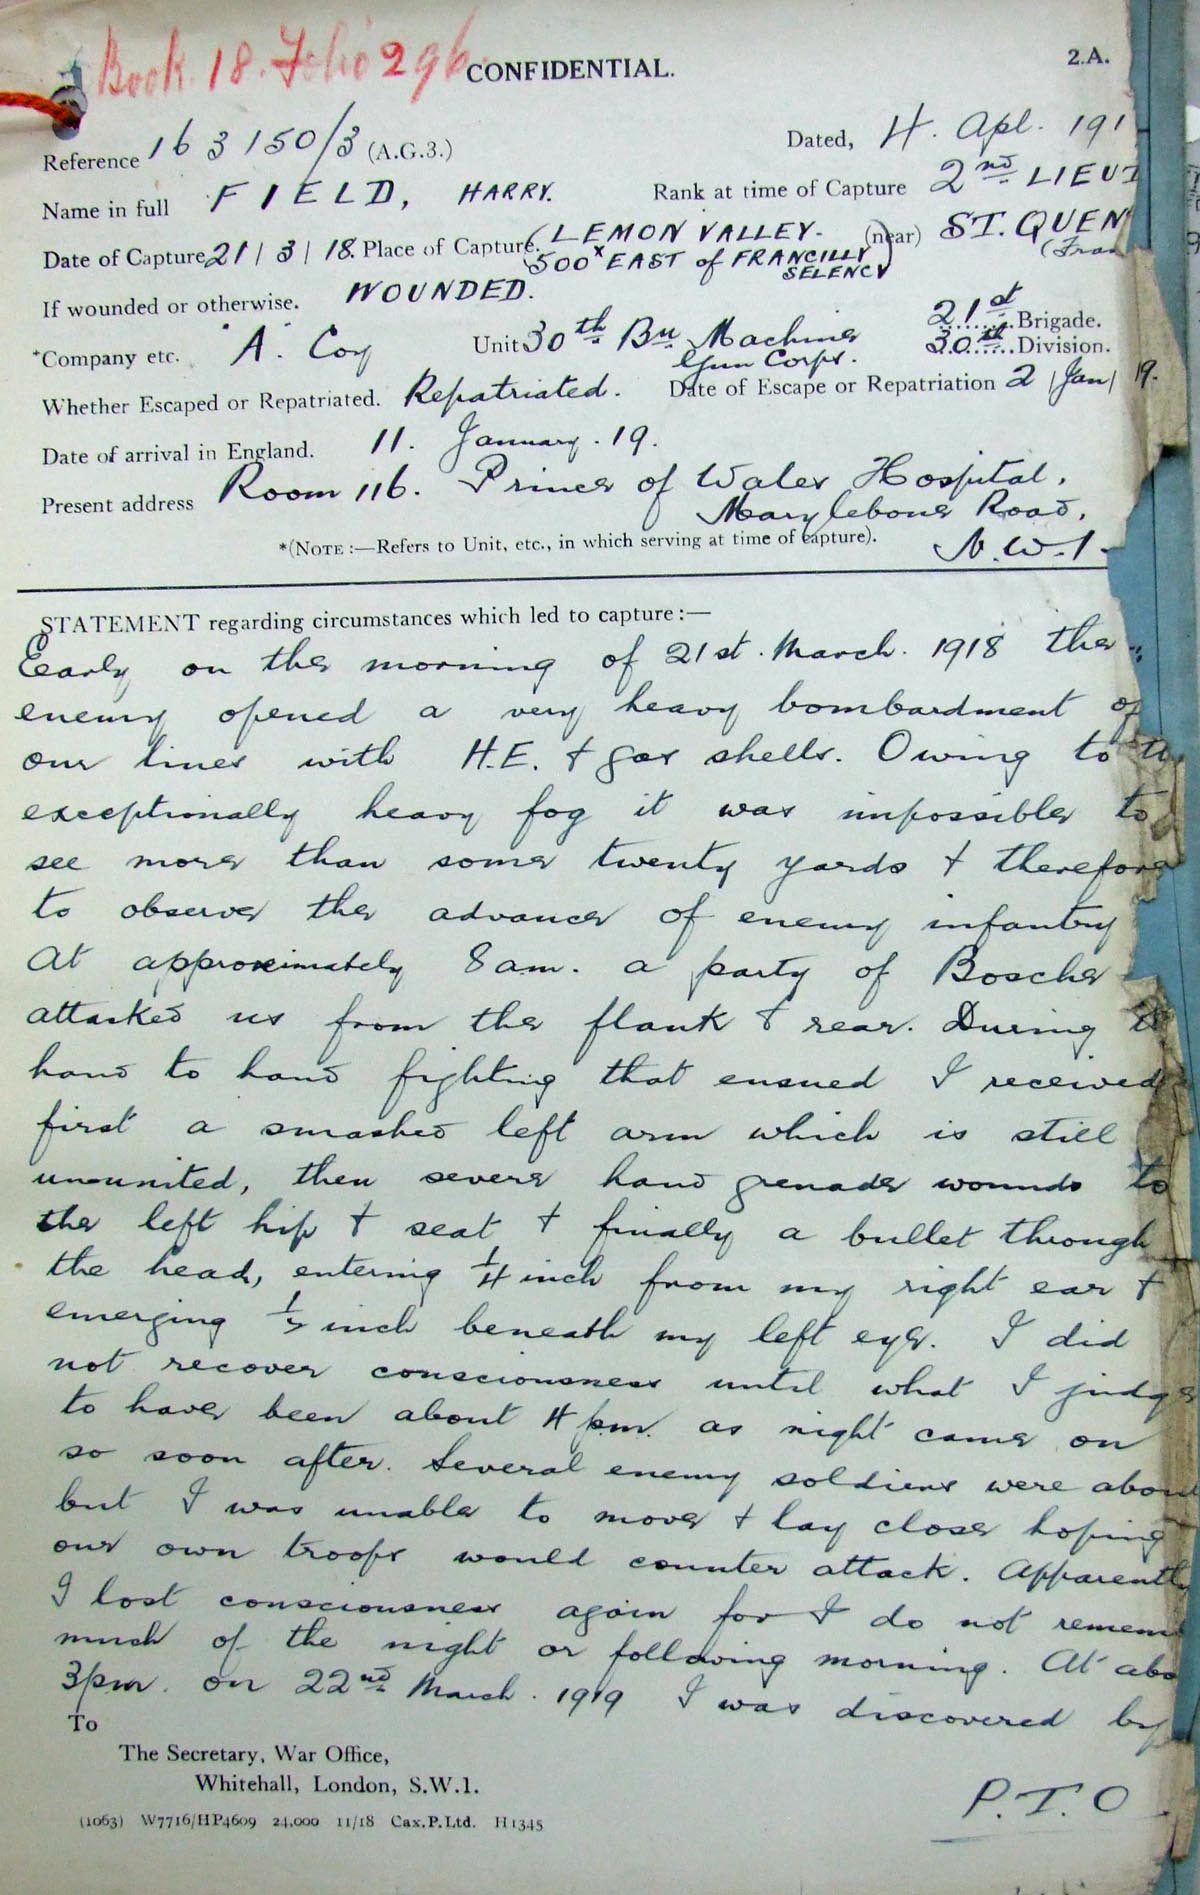 Book. 18. Folio 296.
CONFIDENTIAL.
2.A.
Reference 163150/3 (A.G.3.)
Dated, 4. Apl. 191
Name in full FIELD, HARRY.
Rank at time of Capture 2nd LIEUT
Date of Capture 21/3/18. Place of Capture. (LEMON VALLEY. (near) ST. QUEN
500x EAST of FRANCILLY (Fran
SELENCY)
If wounded or otherwise. WOUNDED.
*Company etc. 'A'. Coy
Unit 30th Bn Machine
Gun Corps.
21st Brigade.
30th Division.
Whether Escaped or Repatriated. Repatriated.
Date of Escape or Repatriation 2/Jan/19.
Date of arrival in England. 11. January. 19.
Present address Room 116. Prince of Wales Hospital,
Marylebone Road,
N.W.1.
*(NOTE:—Refers to Unit, etc., in which serving at time of capture).
STATEMENT regarding circumstances which led to capture:—
Early on the morning of 21st. March. 1918 the
enemy opened a very heavy bombardment of
our lines with H.E. + gas shells. Owing to th
exceptionally heavy fog it was impossible to
see more than some twenty yards + therefore
to observe the advance of enemy infantry
At approximately 8am. a party of Bosche
attacked us from the flank + rear. During
hand to hand fighting that ensued I received
first a smashed left arm which is still
ununited, then severe hand grenade wounds to
the left hip + seat + finally a bullet through
the head, entering ¼ inch from my right ear +
emerging ½ inch beneath my left eye. I did
not recover consciousness until what I judge
to have been about 4 pm. as night came on
so soon after. Several enemy soldiers were about
but I was unable to move + lay close hoping
our own troops would counter attack. Apparently
I lost consciousness again for I do not remem
much of the night or following morning. At abo
3pm. on 22nd March. 1919 I was discovered by
To
The Secretary, War Office,
Whitehall, London, S.W.1.
P.T.O
(1063) W7716/HP4609 24,000 11/18 Cax.P.Ltd. H1345